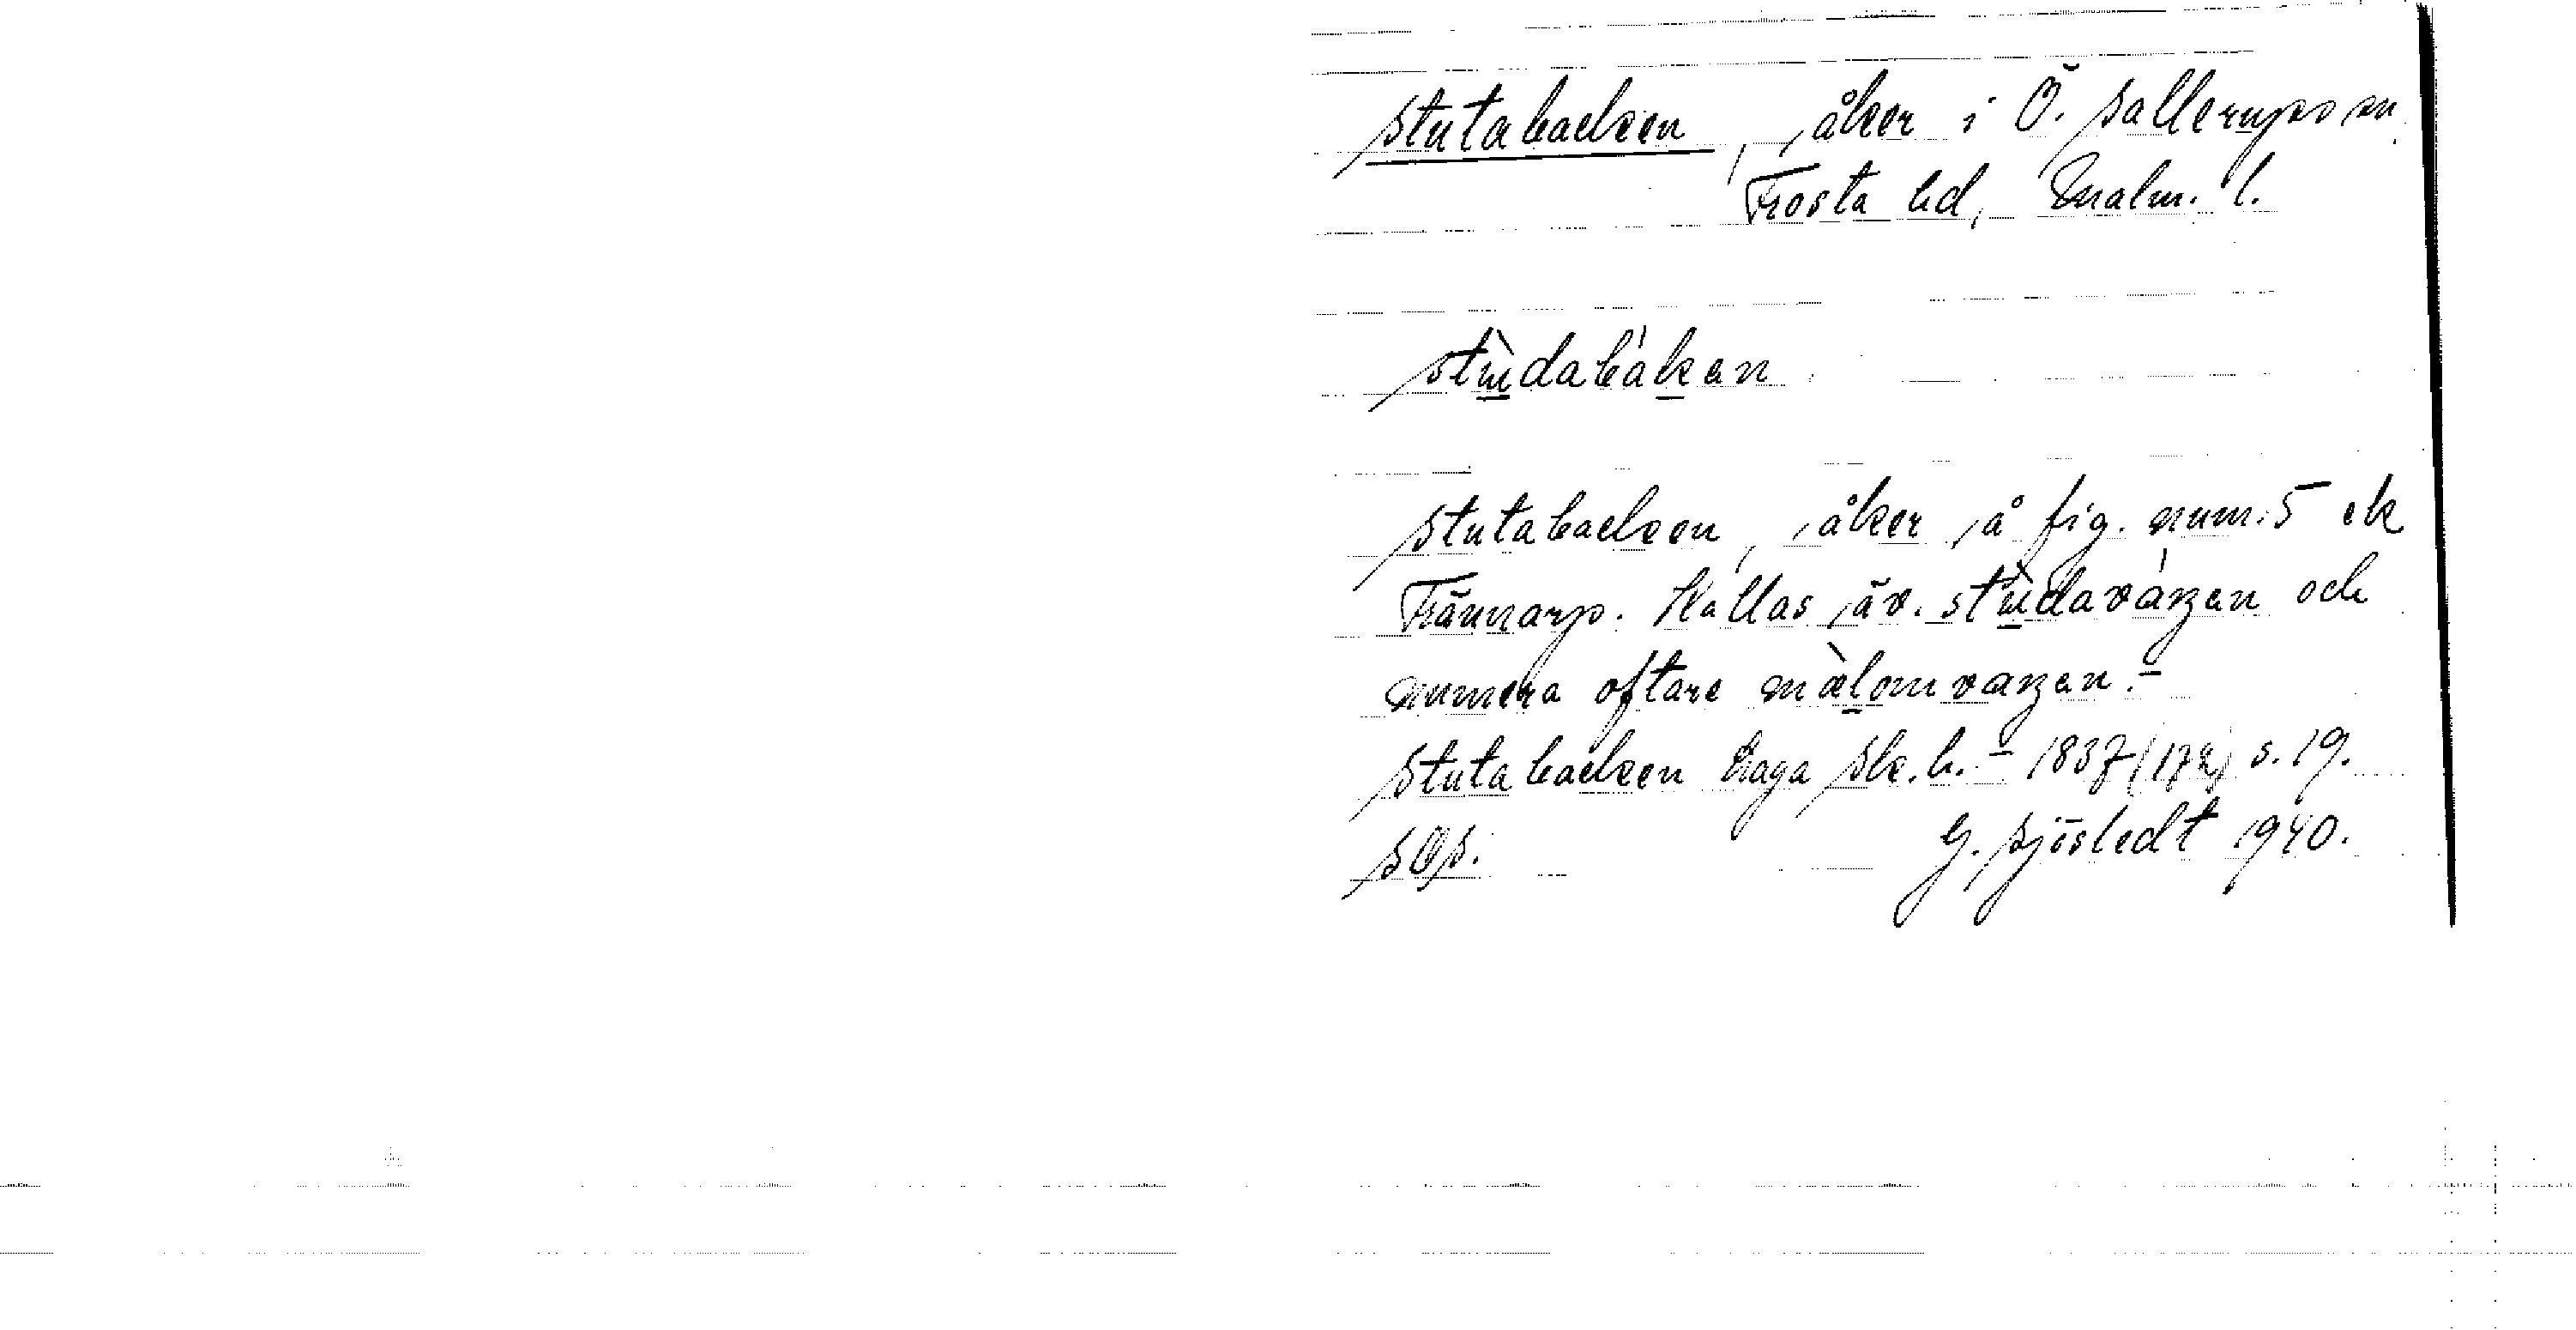 Stutabacken, åker i Ö. Sallerups sn
Frosta hd, Malm. l.
stùdabákan
Stutabacken, åker å fig. num. 5 ek
Trännarp. Kallas äv. stùdaváŋan och
numera oftare mə̀lomvaŋan. -
Stutabacken Laga Sk. h. - 1837 s. 19.
SOS. G. Sjöstedt 1940.